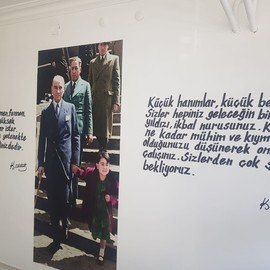 yüksek
ister.
gelenekte
sizdedir.
Küçük hanımlar, küçük be
Sizler hepiniz geleceğin bir
yıldızı, ikbal nurusunuz.
ne kadar mühim ve kıym
olduğunuzu düşünerek on
çalışınız. Sizlerden çok ş
bekliyoruz.